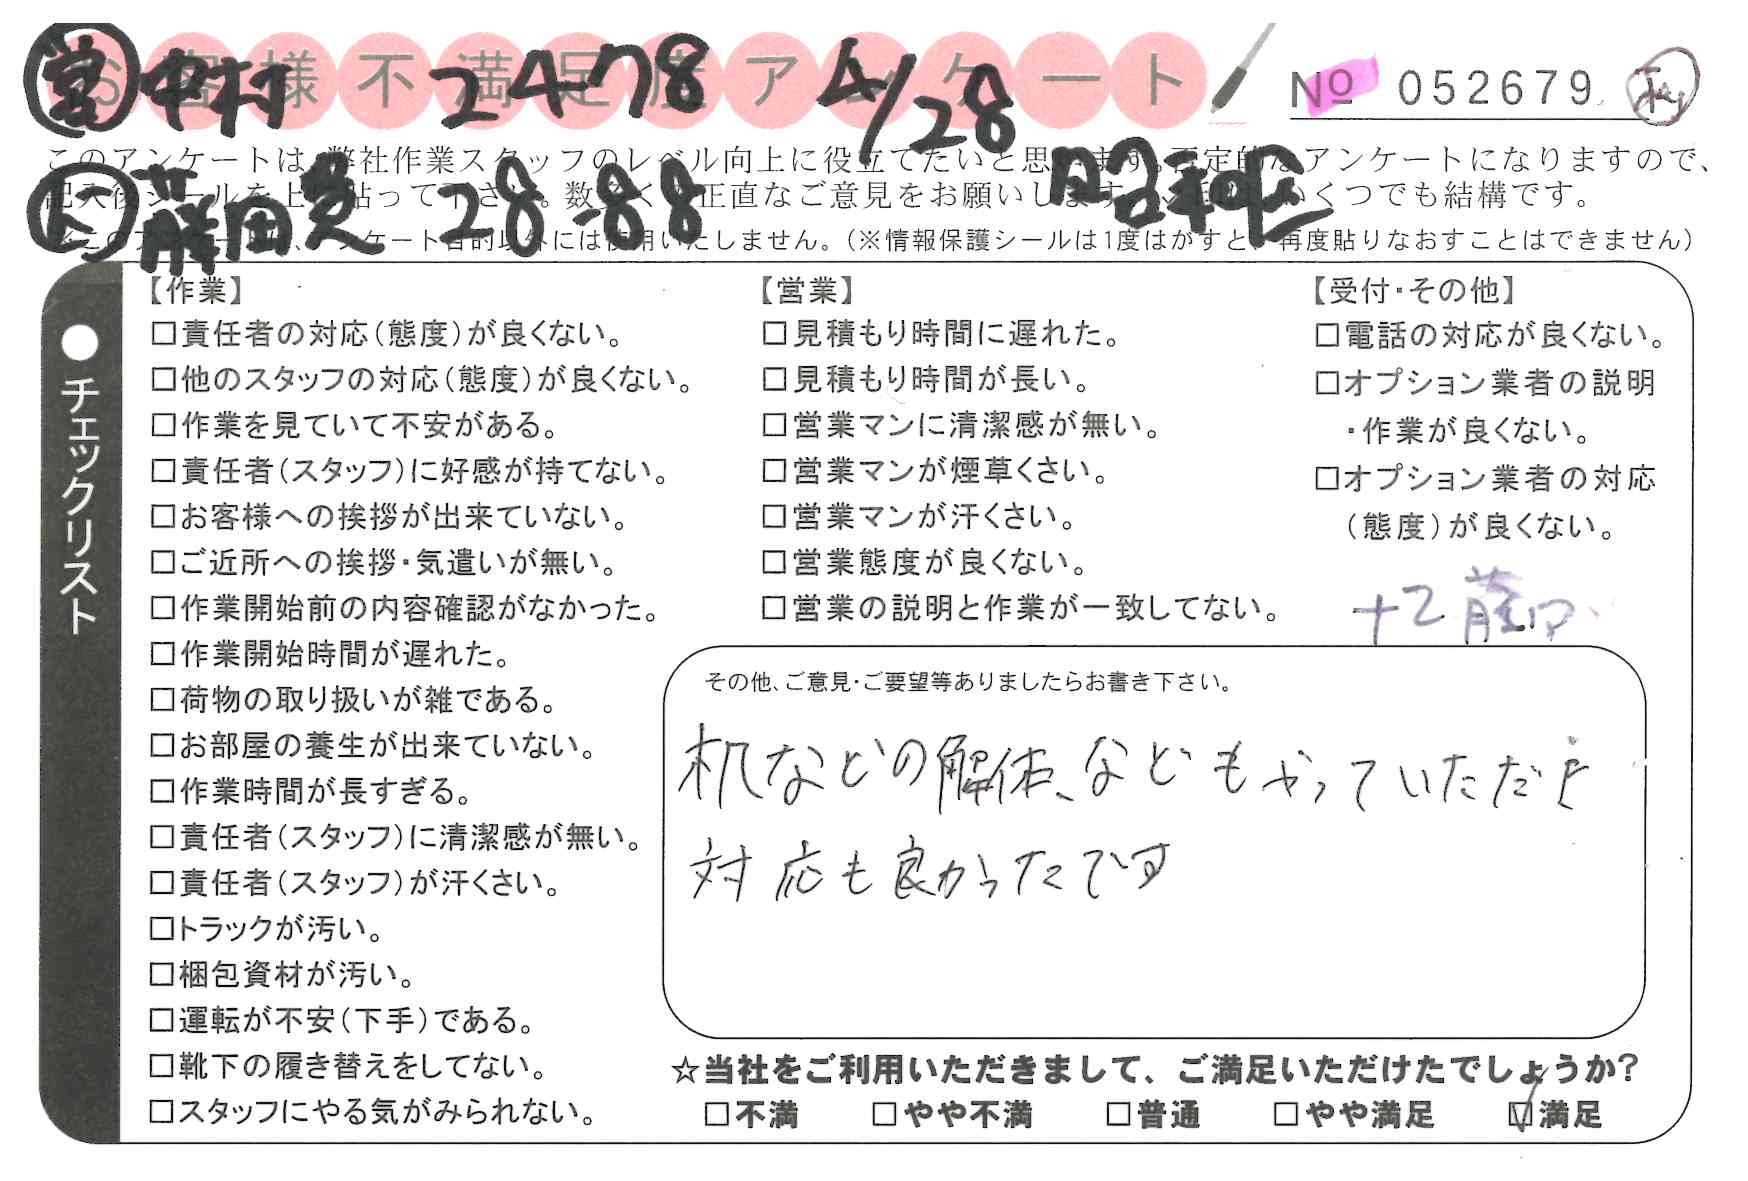 お客様不満足度アンケート
№ 052679
営 中村 24-78 4/28
このアンケートは、弊社作業スタッフのレベル向上に役立てたいと思います。否定的なアンケートになりますので、
記入後シールを上に貼って下さい。数多くの正直なご意見をお願いします。いくつでも結構です。
藤田 28-88
※このアンケートは、アンケート目的以外には使用いたしません。（※情報保護シールは1度はがすと、再度貼りなおすことはできません）
●チェックリスト
【作業】
□責任者の対応（態度）が良くない。
□他のスタッフの対応（態度）が良くない。
□作業を見ていて不安がある。
□責任者（スタッフ）に好感が持てない。
□お客様への挨拶が出来ていない。
□ご近所への挨拶・気遣いが無い。
□作業開始前の内容確認がなかった。
□作業開始時間が遅れた。
□荷物の取り扱いが雑である。
□お部屋の養生が出来ていない。
□作業時間が長すぎる。
□責任者（スタッフ）に清潔感が無い。
□責任者（スタッフ）が汗くさい。
□トラックが汚い。
□梱包資材が汚い。
□運転が不安（下手）である。
□靴下の履き替えをしてない。
□スタッフにやる気がみられない。
【営業】
□見積もり時間に遅れた。
□見積もり時間が長い。
□営業マンに清潔感が無い。
□営業マンが煙草くさい。
□営業マンが汗くさい。
□営業態度が良くない。
□営業の説明と作業が一致してない。
【受付・その他】
□電話の対応が良くない。
□オプション業者の説明
・作業が良くない。
□オプション業者の対応
（態度）が良くない。
+2 藤田
その他、ご意見・ご要望等ありましたらお書き下さい。
机などの解体、などもやっていただき
対応も良かったです
☆当社をご利用いただきまして、ご満足いただけたでしょうか？
□不満 □やや不満 □普通 □やや満足 ☑満足